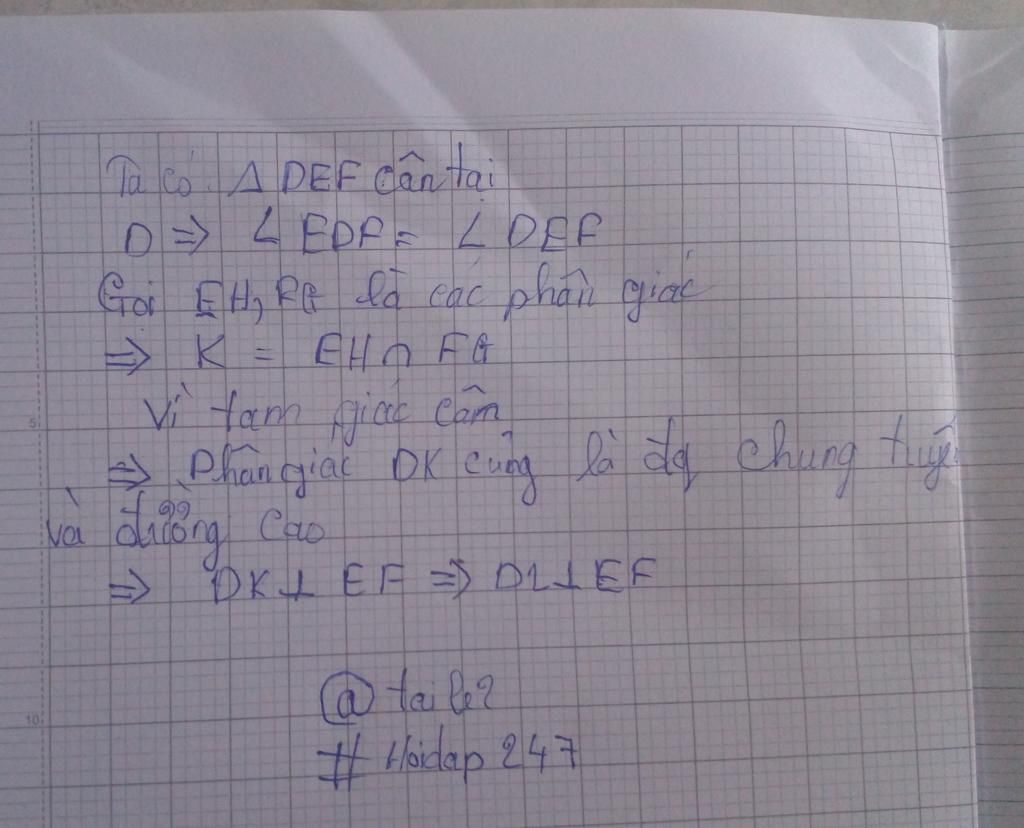 Ta có Δ DEF cân tại
D => ∠ EDF = ∠ DEF
Gọi EH, FG là các phân giác
=> K = EH ∩ FG
Vì tam giác cân
=> Phân giác DK cũng là đg chung tuyế
và đường cao
=> DK ⊥ EF => DI ⊥ EF
@ taile2
# Hoidap 247
5
10